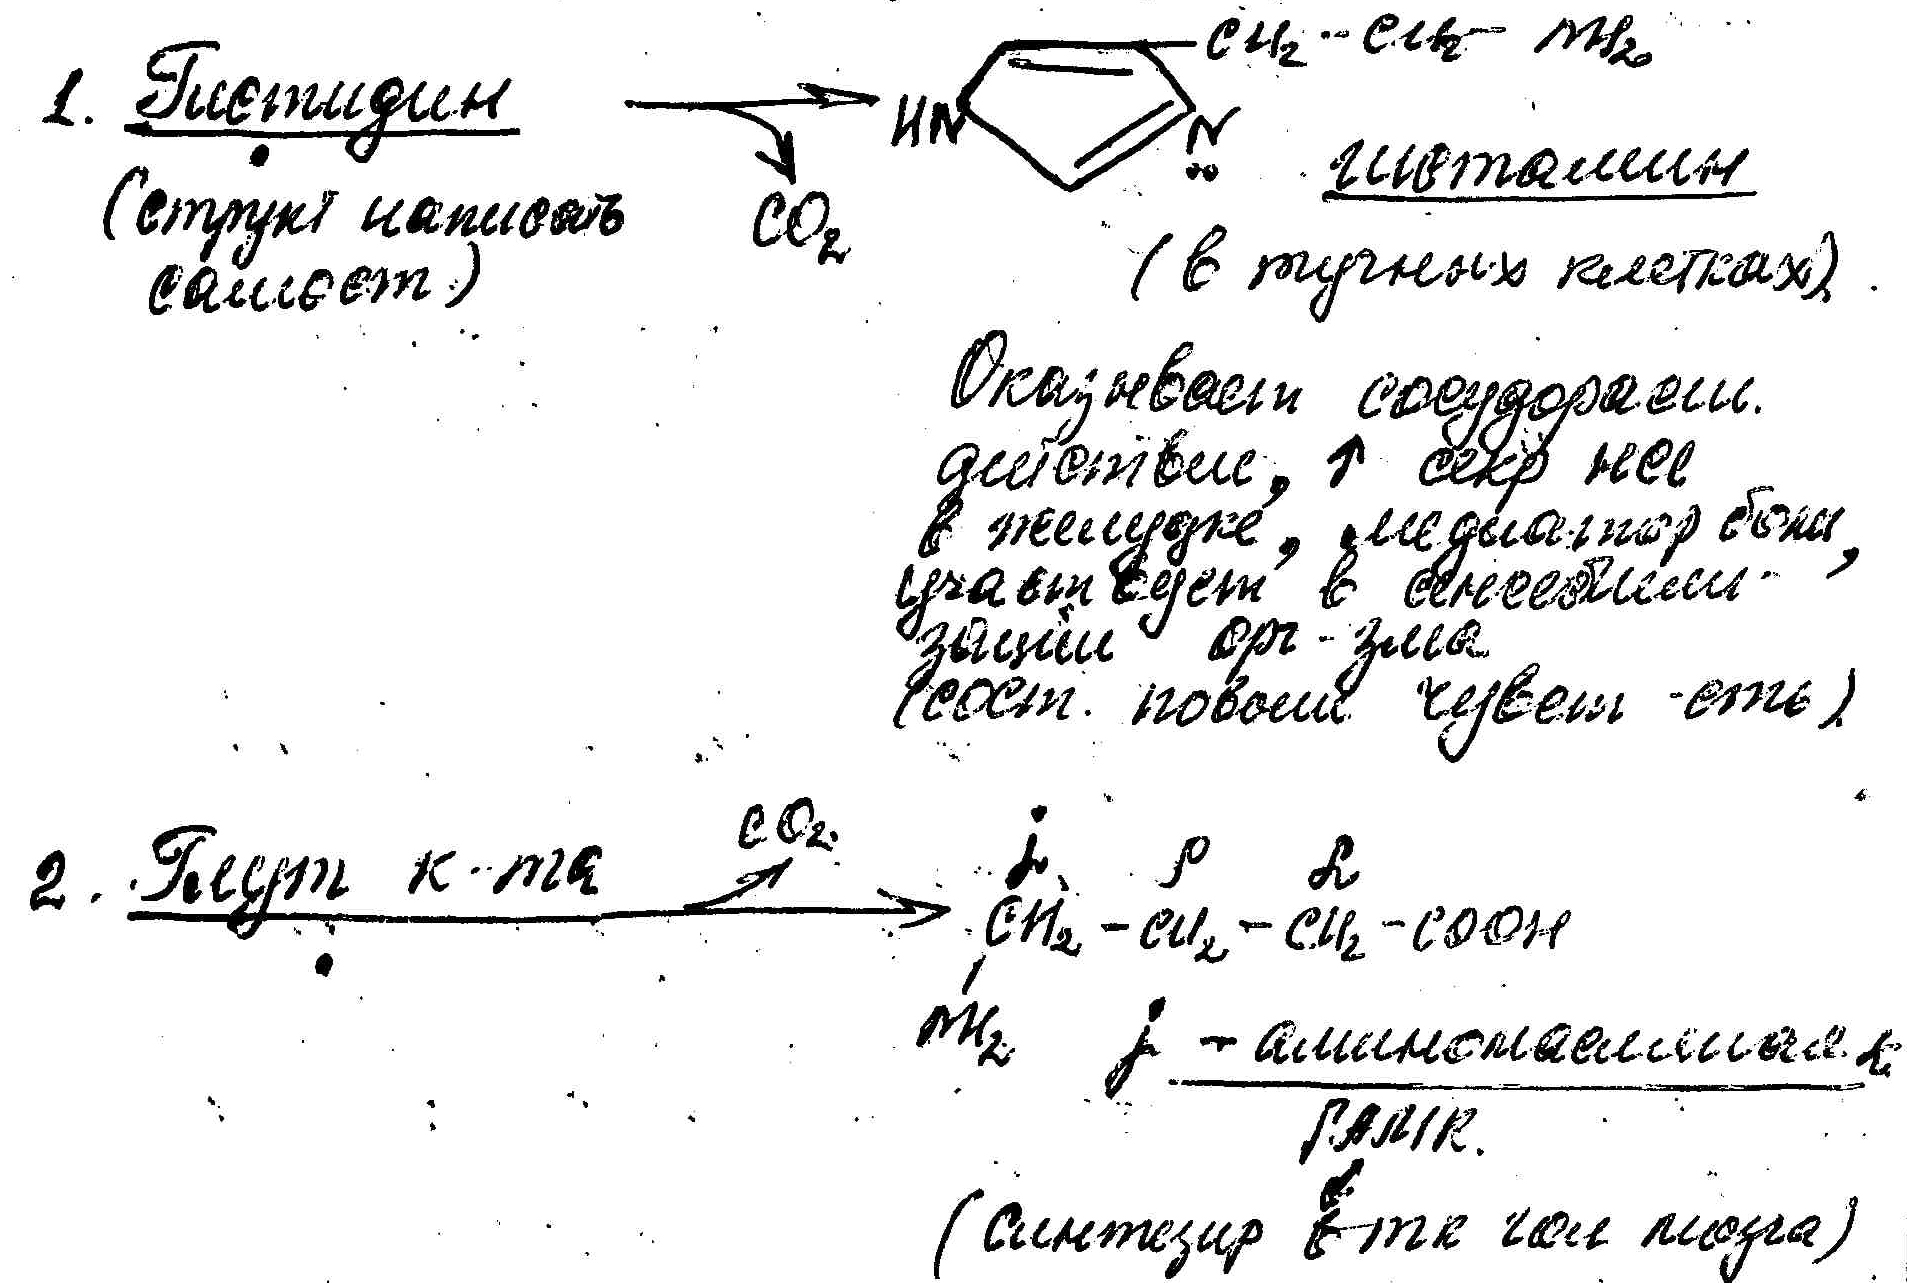 1. Гистидин
CO2
HN
CH2 - CH2 - NH2
N
гистамин
(структ написать
самост)
(в тучных клетках)
Оказывает сосудорасш.
действие, ↑ секр HCl
в желудке, медиатор боли,
участвует в сенсебили-
зации орг-зма
(сост. повыш чувст-сть)
2. Глут к-та
CO2
γ β α
CH2 - CH2 - CH2 - COOH
NH2
γ - аминомасляная к.
ГАМК.
(синтезир в тк гол мозга)